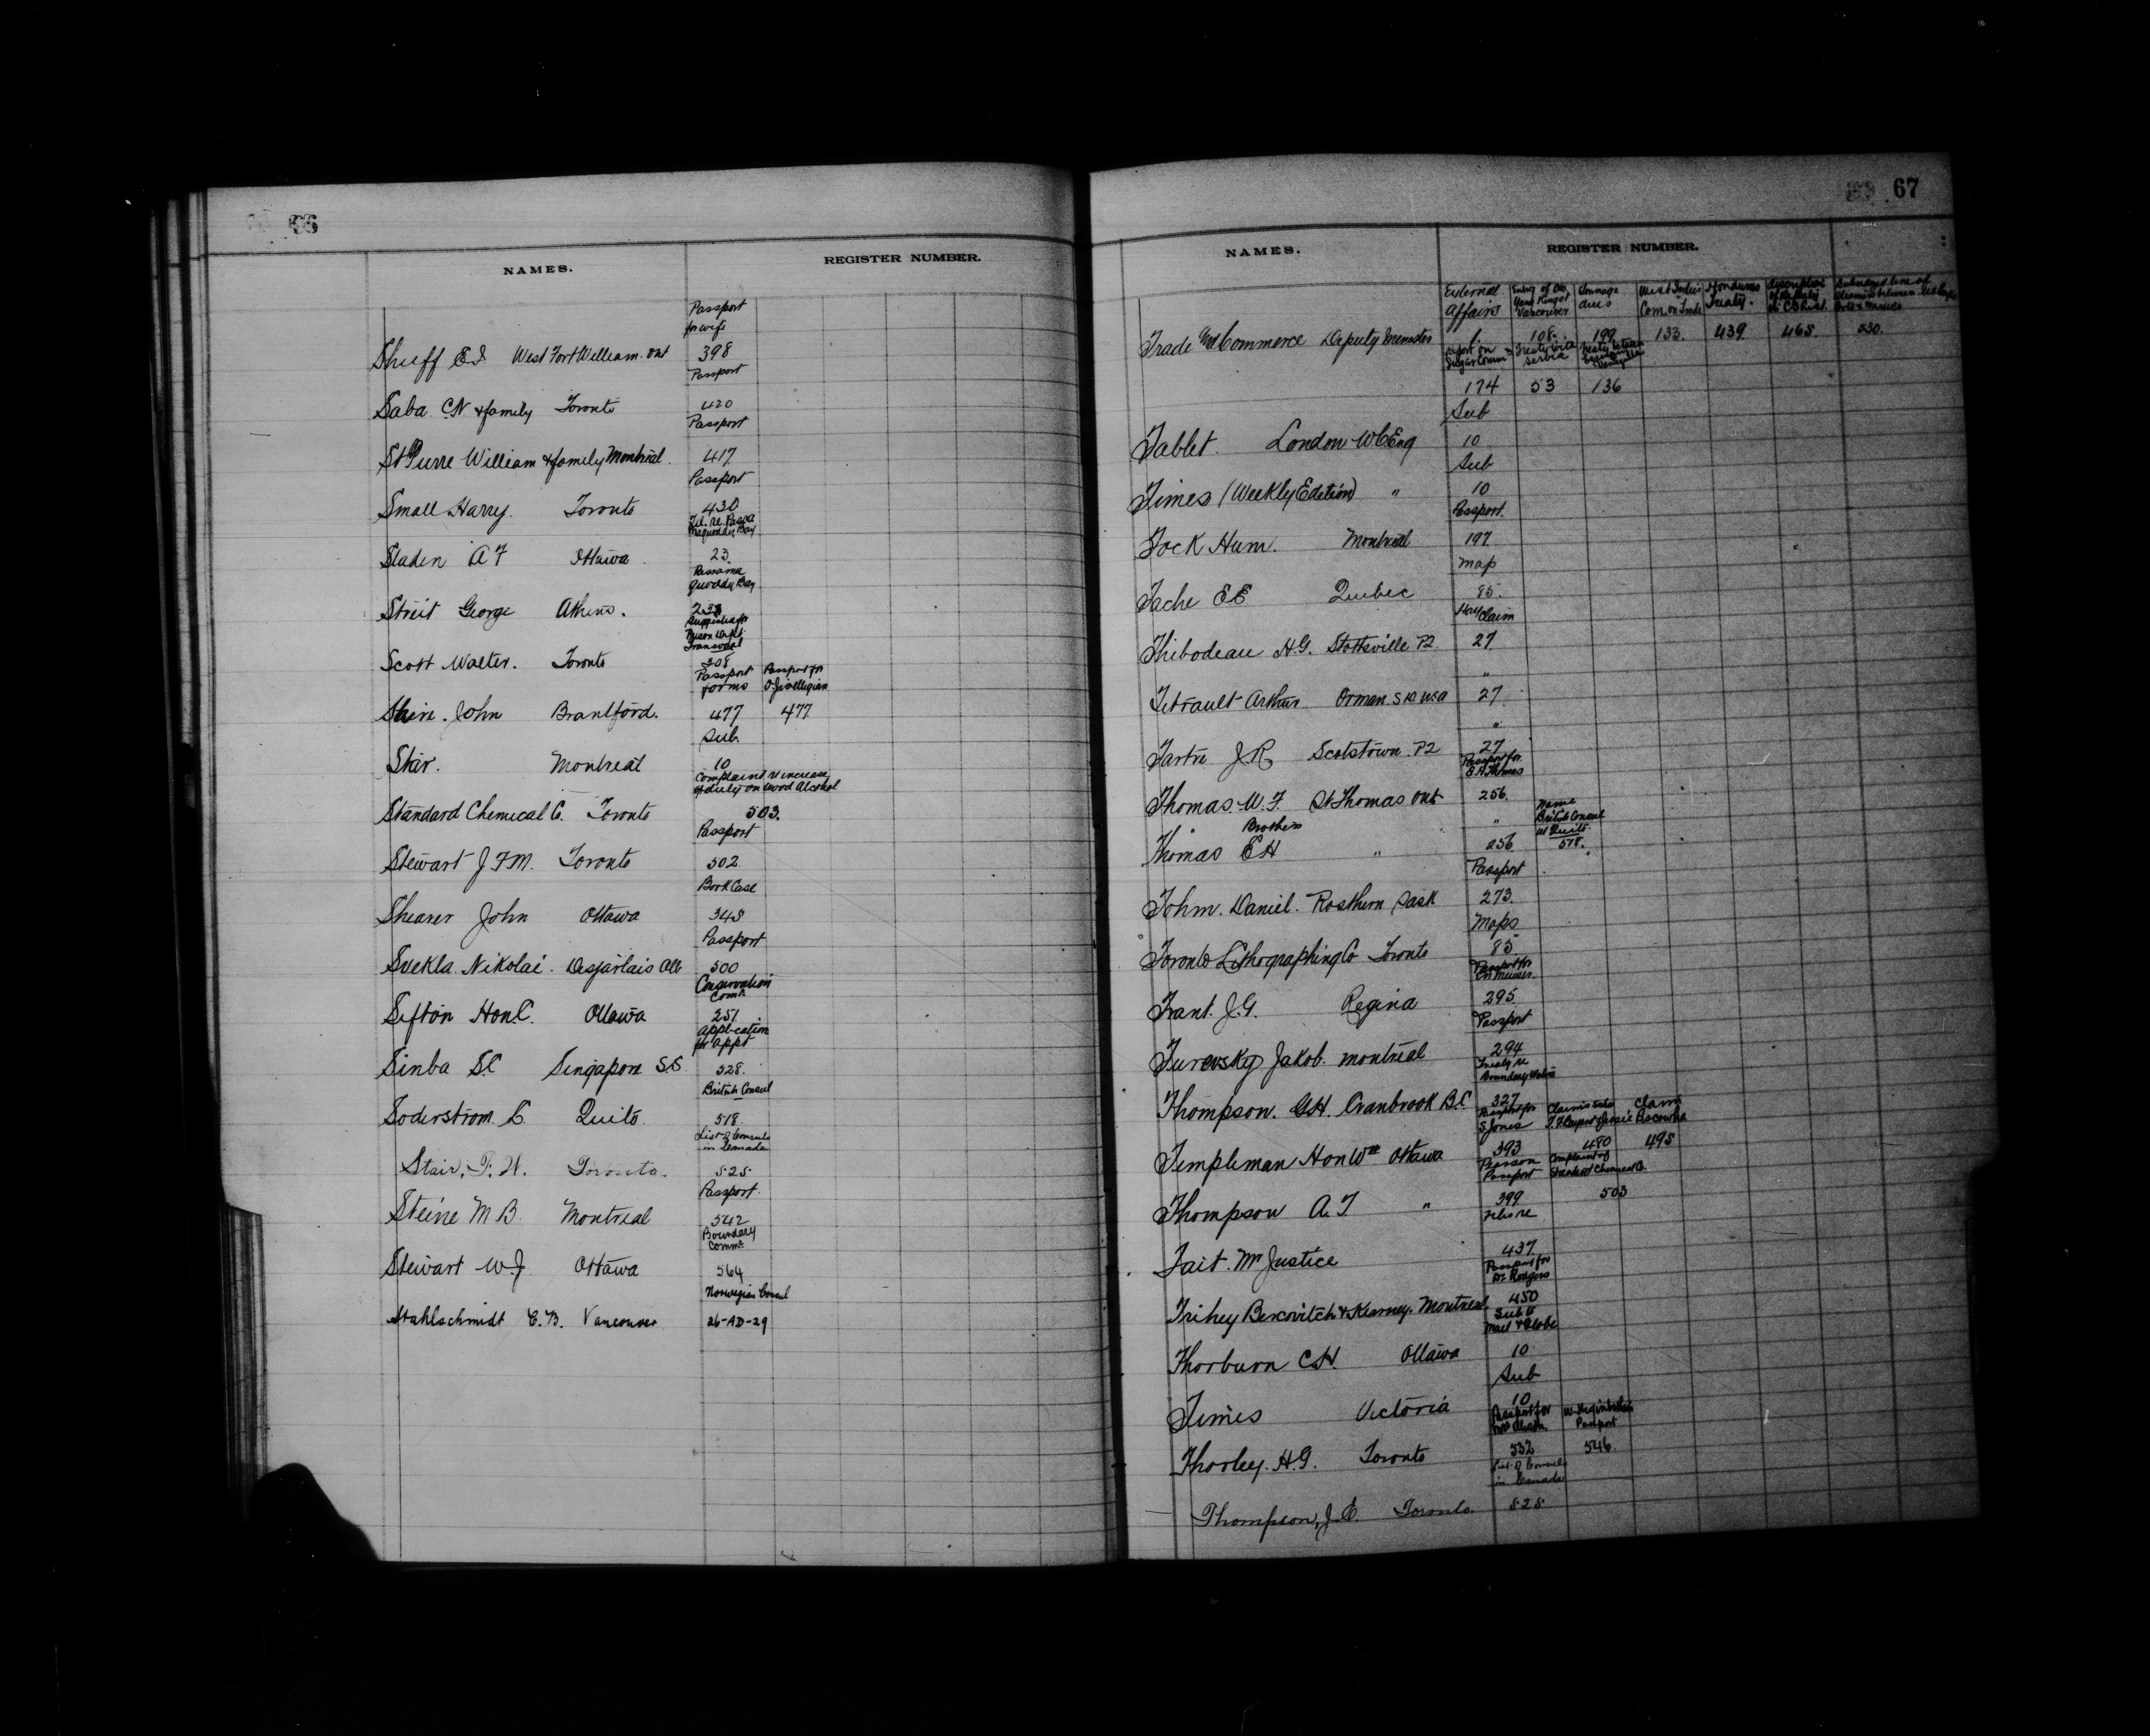 66
NAMES.
REGISTER NUMBER.
Passport
for wife
Shuff E.I. West Fort William. Ont 398
Passport
Saba. C.N & family Toronto 420
Passport
St Pierre William & family Montreal. 417
Passport
Small Harry. Toronto 430
Tel. re. Passa
maquoddy Bay
Sladen A F Ottawa 23.
Passama
quoddy Bay
Streit George Athens.
Transvaal
Scott Walter. Toronto 308
Passport Passport for
forms
John Brantford. 477 477
Sub.
Star. Montreal 10
Complaint re increase
of duty on Wood Alcohol
Standard Chemical Co. Toronto 503.
Passport
Stewart J F M. Toronto 502
Book Case
Shearer John Ottawa 345
Passport
Svekla. Nikolai. Desjarlais Alb 500
Conservation
Comn.
Sifton Hon. C. Ottawa 251
Application
for appt
Sinba S.C Singapore S.S. 528.
British Consul
Soderstrom. L. Quito. 518.
List of Consuls
in Canada
Stair, T. W. Toronto. 525
Passport.
Steine M B. Montreal 542
Boundary
Comn.
Stewart W.J Ottawa 564
Norwegian Consul
Stahlschmidt C.B. Vancouver 26-AD-29
67
NAMES.
REGISTER NUMBER.
External Tonnage West Indies Honduras
Affairs Vancouver dues Com. on Trade Treaty.
Trade and Commerce Deputy Minister 1. 108. 199 133. 439. 465. 530.
Report on Treaty with
Sugar Comn Serbia
174 53 136
Sub
Tablet. London W C Eng 10
Sub
Times (Weekly Edition) " 10
Passport.
Tock Hum. Montreal 197
Map
Tache E E Quebec 85.
Hay Claim
Thibodeau H.G. Stottsville P2 27.
"
Tetrault Arthur Orman. S D. USA 27.
"
Tartre J.R. Scotstown. P2 27
Passport for
E H Thomas
Thomas. W. F. St Thomas Ont 256.
Name
British Consul
at Quito
Brother "
Thomas E H " 256 518.
Passport
Tohm. Daniel. Rosthern Sask 273.
Maps
Toronto Lithographing Co Toronto 85
Passport for
Trant. J.G. Regina 295
Passport
Turevsky Jakob. Montreal 294
Treaty re
Boundary Waters
Thompson. G.H. Cranbrook B.C. 327
Passport for Claim
S Jones
Templeman Hon Wm Ottawa 393 480 495
Pearson Complaint of
Passport Standard Chemical Co.
Thompson A. T " 399 503
Tait. Mr Justice 437.
Passport for
Dr. Rodgers
Trihey Bercovitch & Kearney. Montreal. 450
Sub to
Mail & Globe
Thorburn C.H. Ottawa 10
Sub
Times Victoria 10
Passport for
Passport
Thorley. H.G. Toronto 532 546
List of Consuls
in Canada
Thompson, J. E. Toronto. 525